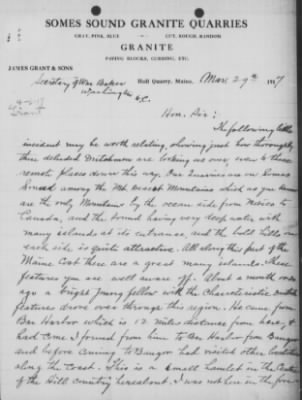 SOMES SOUND GRANITE QUARRIES
GRAY, PINK, BLUE CUT, ROUGH, RANDOM
GRANITE
PAVING BLOCKS, CURBING, ETC.
JAMES GRANT & SONS
Hall Quarry, Maine, Mar 29th 1917
Secretary of War Baker
Washington D.C.
Hon. Sir:
The following little
incident may be worth relating, showing just how thoroughly
these deluded Dutchmen are looking us over, even to these
remote places down this way. Our Quarries are on Somes
Sound among the Mt Desert Mountains which as you know
are the only Mountains by the ocean side from Mexico to
Canada, and the Sound having very deep water with
many islands at its entrance, and the bold hills on
each side is quite attractive. All along this part of the
Maine Coast there are a great many islands. These
features you are well aware of. About a month ago
a bright young fellow with the characteristic Dutch
features drove over through this region. He came from
Bar Harbor which is 12 miles distance from here, &
had come I found from him to Bar Harbor from Bangor
and before coming to Bangor had visited other localities
along the Coast. This is a small hamlet in the
of the Hill country hereabout. I was not here in the